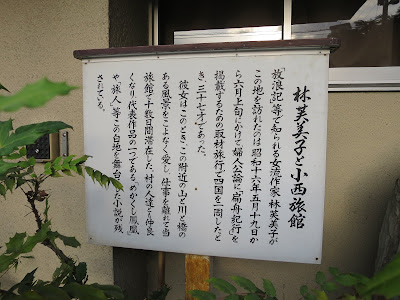 林芙美子と小西旅館
「放浪記」等で知られる女流作家・林芙美子が
この地を訪れたのは昭和十六年五月十九日か
ら六月上旬にかけて、婦人公論に「扁舟紀行」を
掲載するための取材旅行で四国を一周したと
き、三十七才であった。
彼女はこのとき、この附近の山と川と橋の
ある風景をこよなく愛し、仕事を離れて当
旅館で十数日間滞在した。村の人達とも仲良
くなり、代表作品の一つである、「めかくし鳳凰」
や、「旅人」等この白地を舞台にした小説が残
されている。